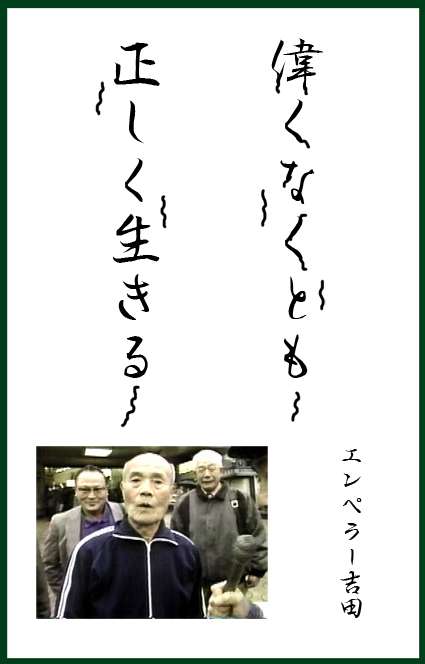 偉くなくとも〜
正しく生きる〜
エンペラー吉田